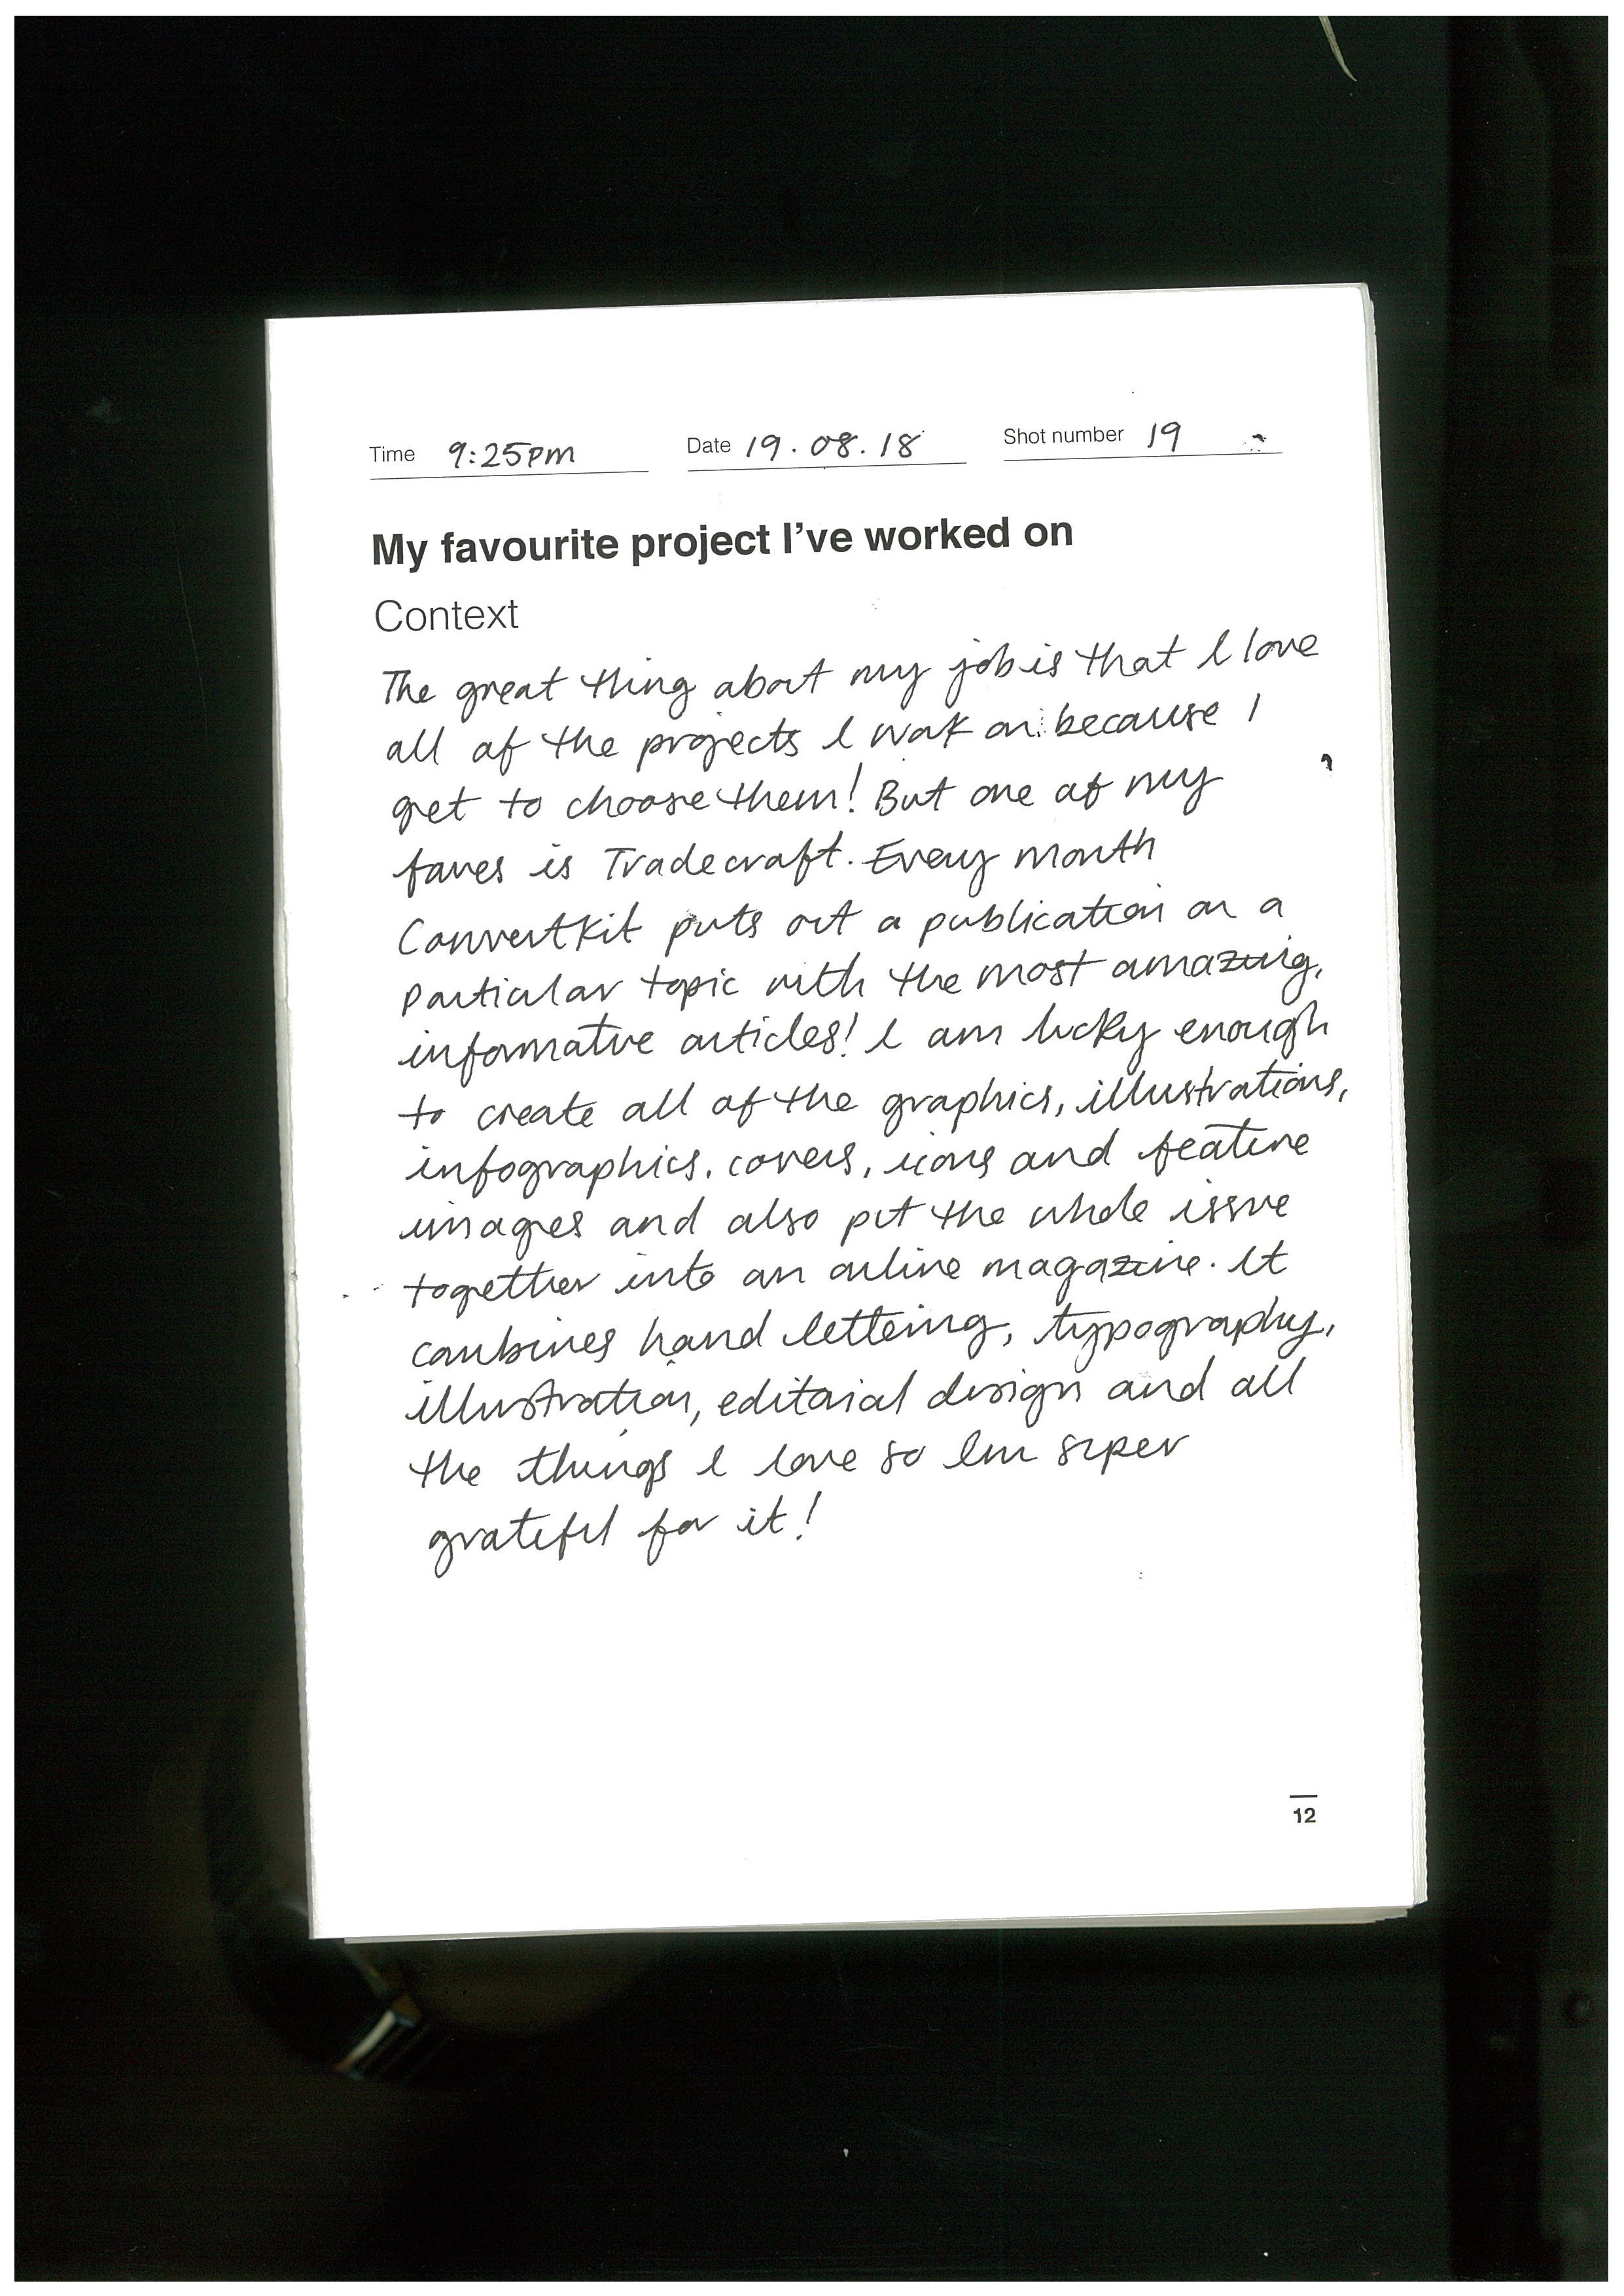 Time 9:25pm Date 19.08.18 Shot number 19
My favourite project I've worked on
Context
The great thing about my job is that I love
all of the projects I work on because I
get to choose them! But one of my
faves is Tradecraft. Every month
Convertkit puts out a publication on a
particular topic with the most amazing,
informative articles! I am lucky enough
to create all of the graphics, illustrations,
infographics, covers, icons and feature
images and also put the whole issue
together into an online magazine. It
combines hand lettering, typography,
illustration, editorial design and all
the things I love so Im super
grateful for it!
12